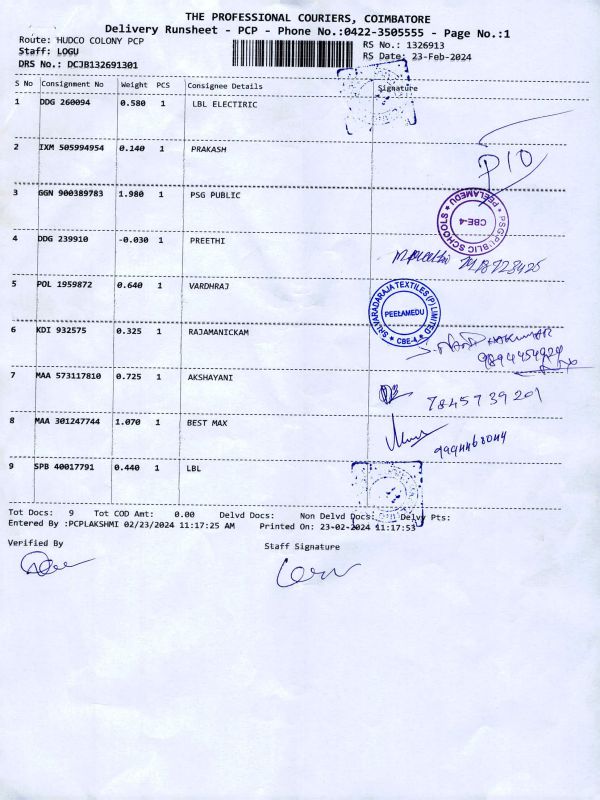 THE PROFESSIONAL COURIERS, COIMBATORE
Delivery Runsheet - PCP - Phone No.:0422-3505555 - Page No.:1
Route: HUDCO COLONY PCP RS No.: 1326913
Staff: LOGU RS Date: 23-Feb-2024
DRS No.: DCJB132691301
S No Consignment No Weight PCS Consignee Details Signature
1 DDG 260094 0.580 1 LBL ELECTIRIC
2 IXM 505994954 0.140 1 PRAKASH
P10
3 GGN 900389783 1.980 1 PSG PUBLIC
PSG PUBLIC SCHOOLS ★ PEELAMEDU ★
CBE-4
4 DDG 239910 -0.030 1 PREETHI
5 POL 1959872 0.640 1 VARDHRAJ
SRI VARADARAJA TEXTILES (P) LIMITED
PEELAMEDU
★ CBE-4 ★
6 KDI 932575 0.325 1 RAJAMANICKAM
7 MAA 573117810 0.725 1 AKSHAYANI
7845739201
8 MAA 301247744 1.070 1 BEST MAX
9 SPB 40017791 0.440 1 LBL
Tot Docs: 9 Tot COD Amt: 0.00 Delvd Docs: Non Delvd Docs: Delvy Pts:
Entered By :PCPLAKSHMI 02/23/2024 11:17:25 AM Printed On: 23-02-2024 11:17:53
Verified By
Staff Signature